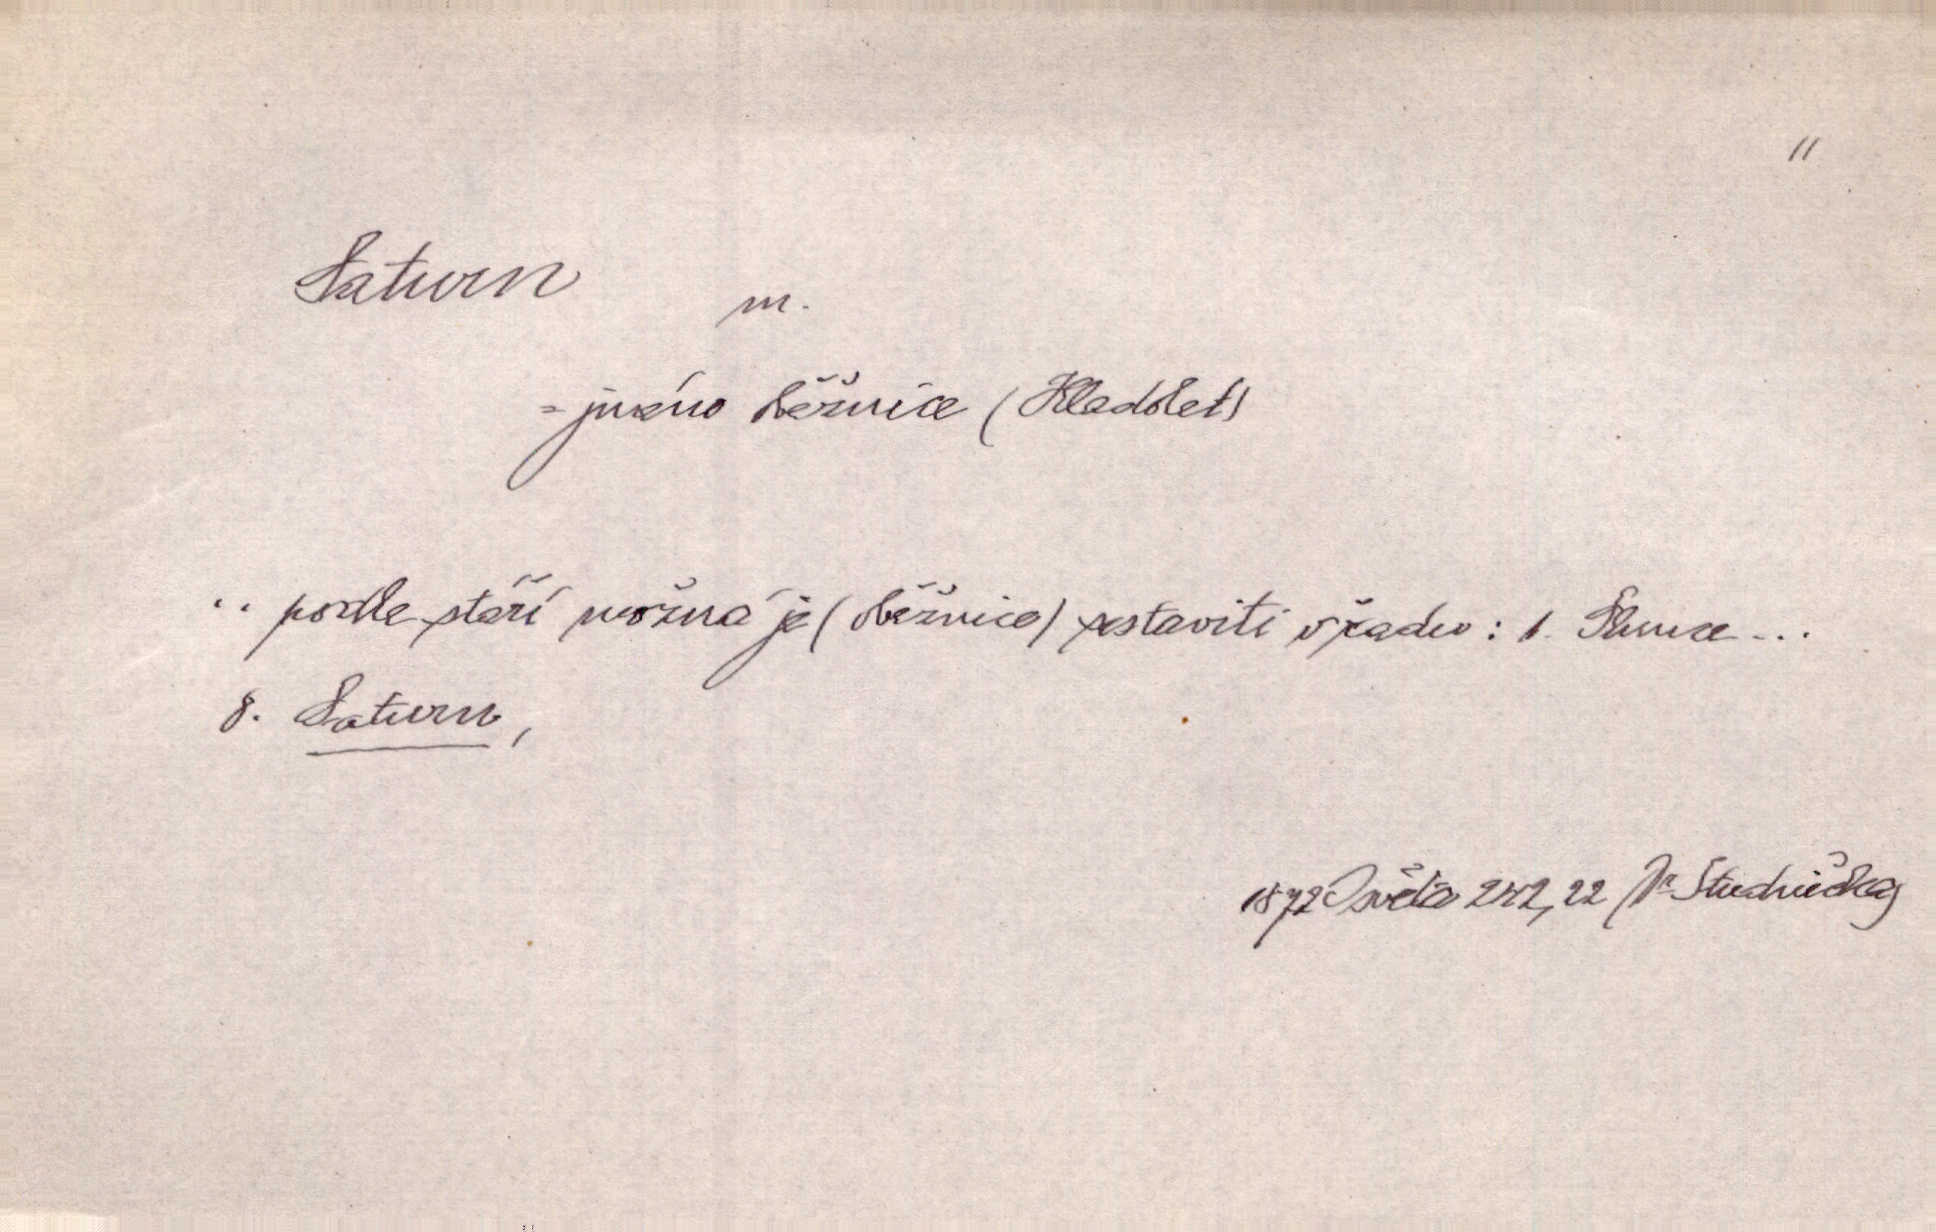 "
Saturn m.
= jméno oběžnice (Hladolet)
.. podle stáří možná je (oběžnice) sestaviti v řadu: 1. Slunce ...
8. Saturn,
1872 Osvěta 242, 22 Dr Studnička